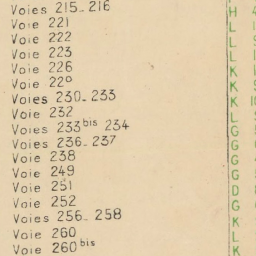 Voies 215_216 H
Voie 221 L
Voie 222 L
Voie 223 L
Voie 226 K
Voie 22° K
Voies 230_233 K
Voie 232 L
Voies 233bis 234 G
Voies 236_237 G
Voie 238 G
Voie 249 G
Voie 251 D
Voie 252 G
Voies 256_258 K
Voie 260 L
Voie 260bis K